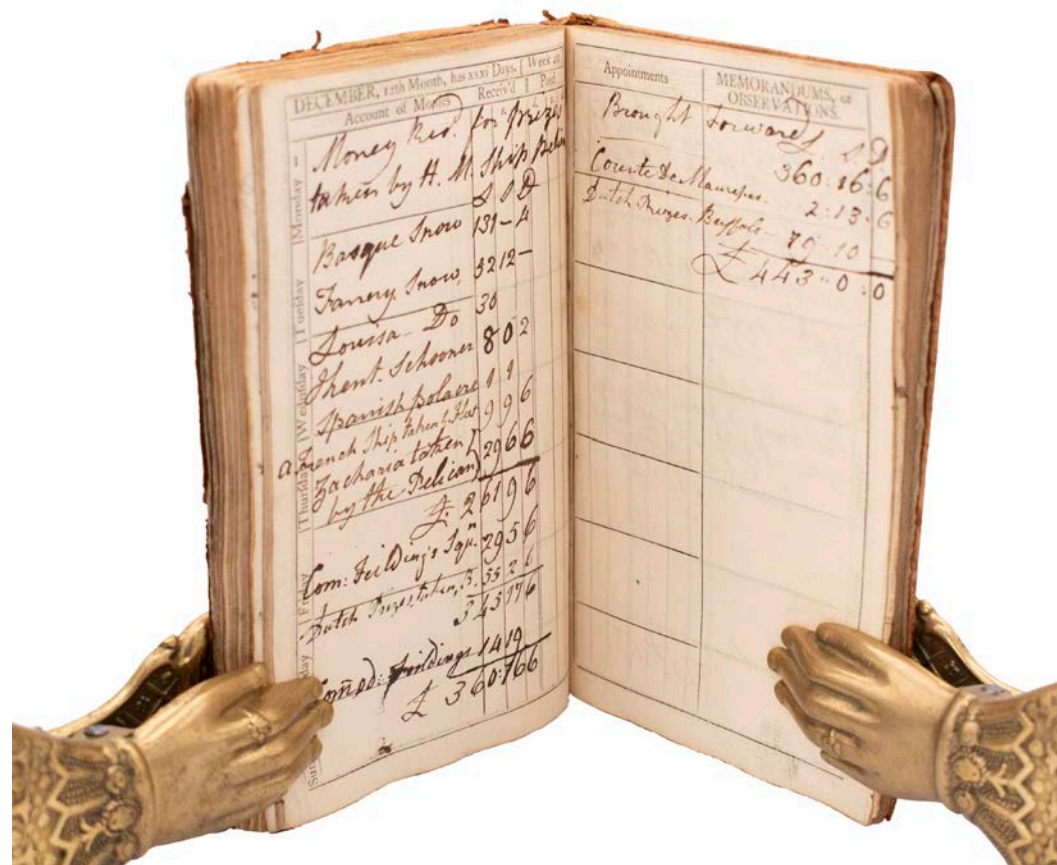 DECEMBER, 12th Month, has xxxi Days. Week
Account of Monies Receiv'd Paid
Monday
Tuesday
Wednesday
Thursday
Friday
Money Recd. for prizes
taken by H. M. Ship
£ S D
Basque Snow 131 – 4
Fanney Snow, 52 12 –
Louisa – Do 30
Schooner 8 0 2
Spanish polacre 1 1
a French Ship taken by 9 9 6
Zacharia taken } 29 6 6
by the Pelican
£. 261 9 6
Com: Feildings Sqn. 29 5 6
Dutch Prizes, taken, 55 2 6
345 17 6
Comod: Feildings 14 19
£ 360:16 6
Appointments MEMORANDUMS, or
OBSERVATIONS.
Brought Forward £. S. D
360:16:6
Courte De Maurepas 2:13:6
Dutch Prizes Buffalo – 79–10 –
£ 443–0:0